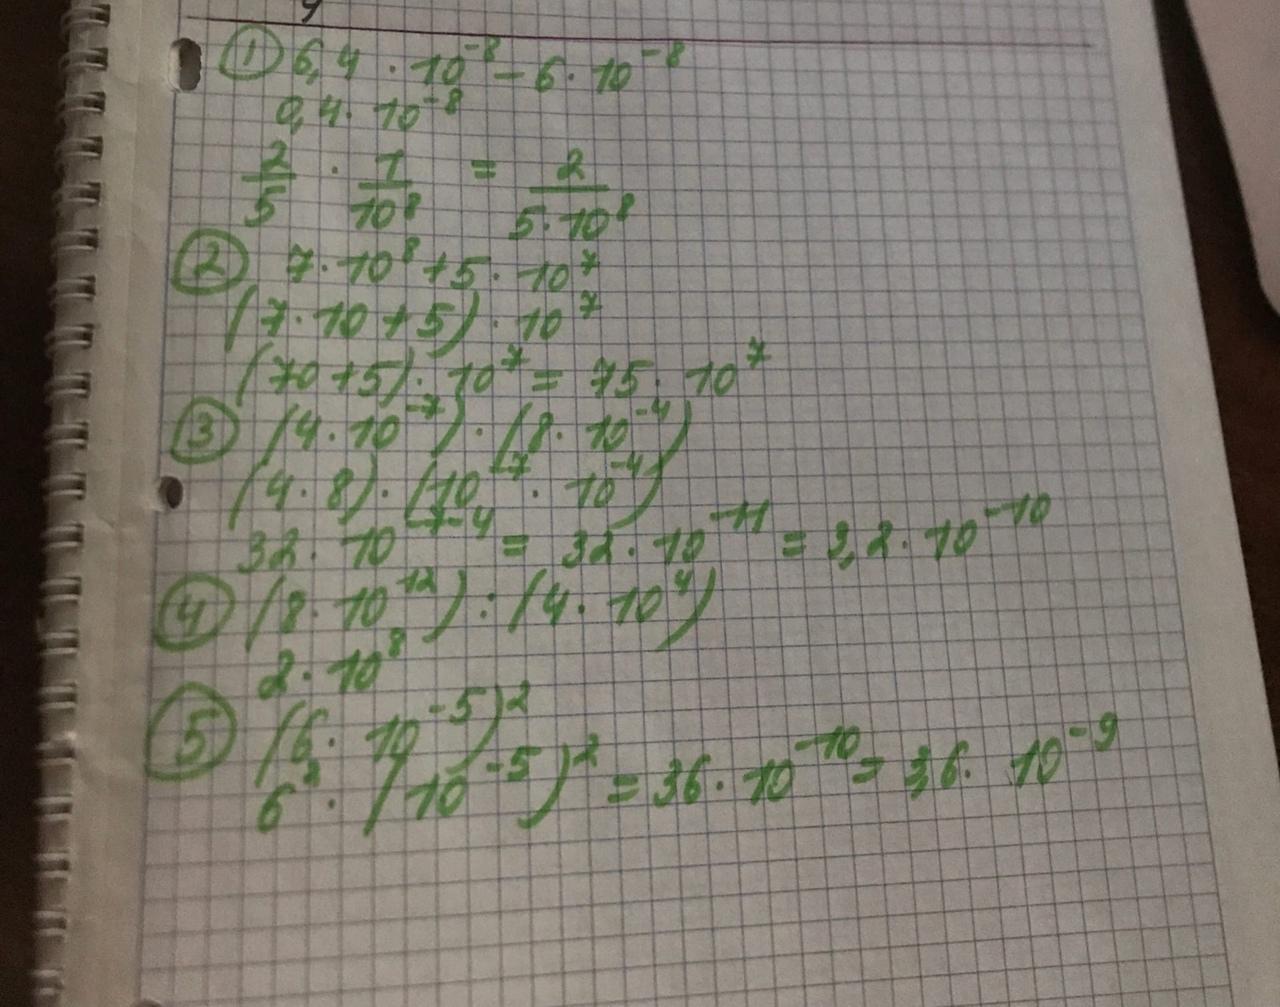 ① 6,4 · 10⁻⁸ − 6 · 10⁻⁸
0,4 · 10⁻⁸
2/5 · 1/10⁸ = 2/(5 · 10⁸)
② 7 · 10⁸ + 5 · 10⁷
(7 · 10 + 5) · 10⁷
(70 + 5) · 10⁷ = 75 · 10⁷
③ (4 · 10⁻⁷) · (8 · 10⁻⁴)
(4 · 8) · (10⁻⁷ · 10⁻⁴)
32 · 10⁻⁷⁻⁴ = 32 · 10⁻¹¹ = 3,2 · 10⁻¹⁰
④ (8 · 10¹²) : (4 · 10⁴)
2 · 10⁸
⑤ (6 · 10⁻⁵)²
6² · (10⁻⁵)² = 36 · 10⁻¹⁰ = 3,6 · 10⁻⁹